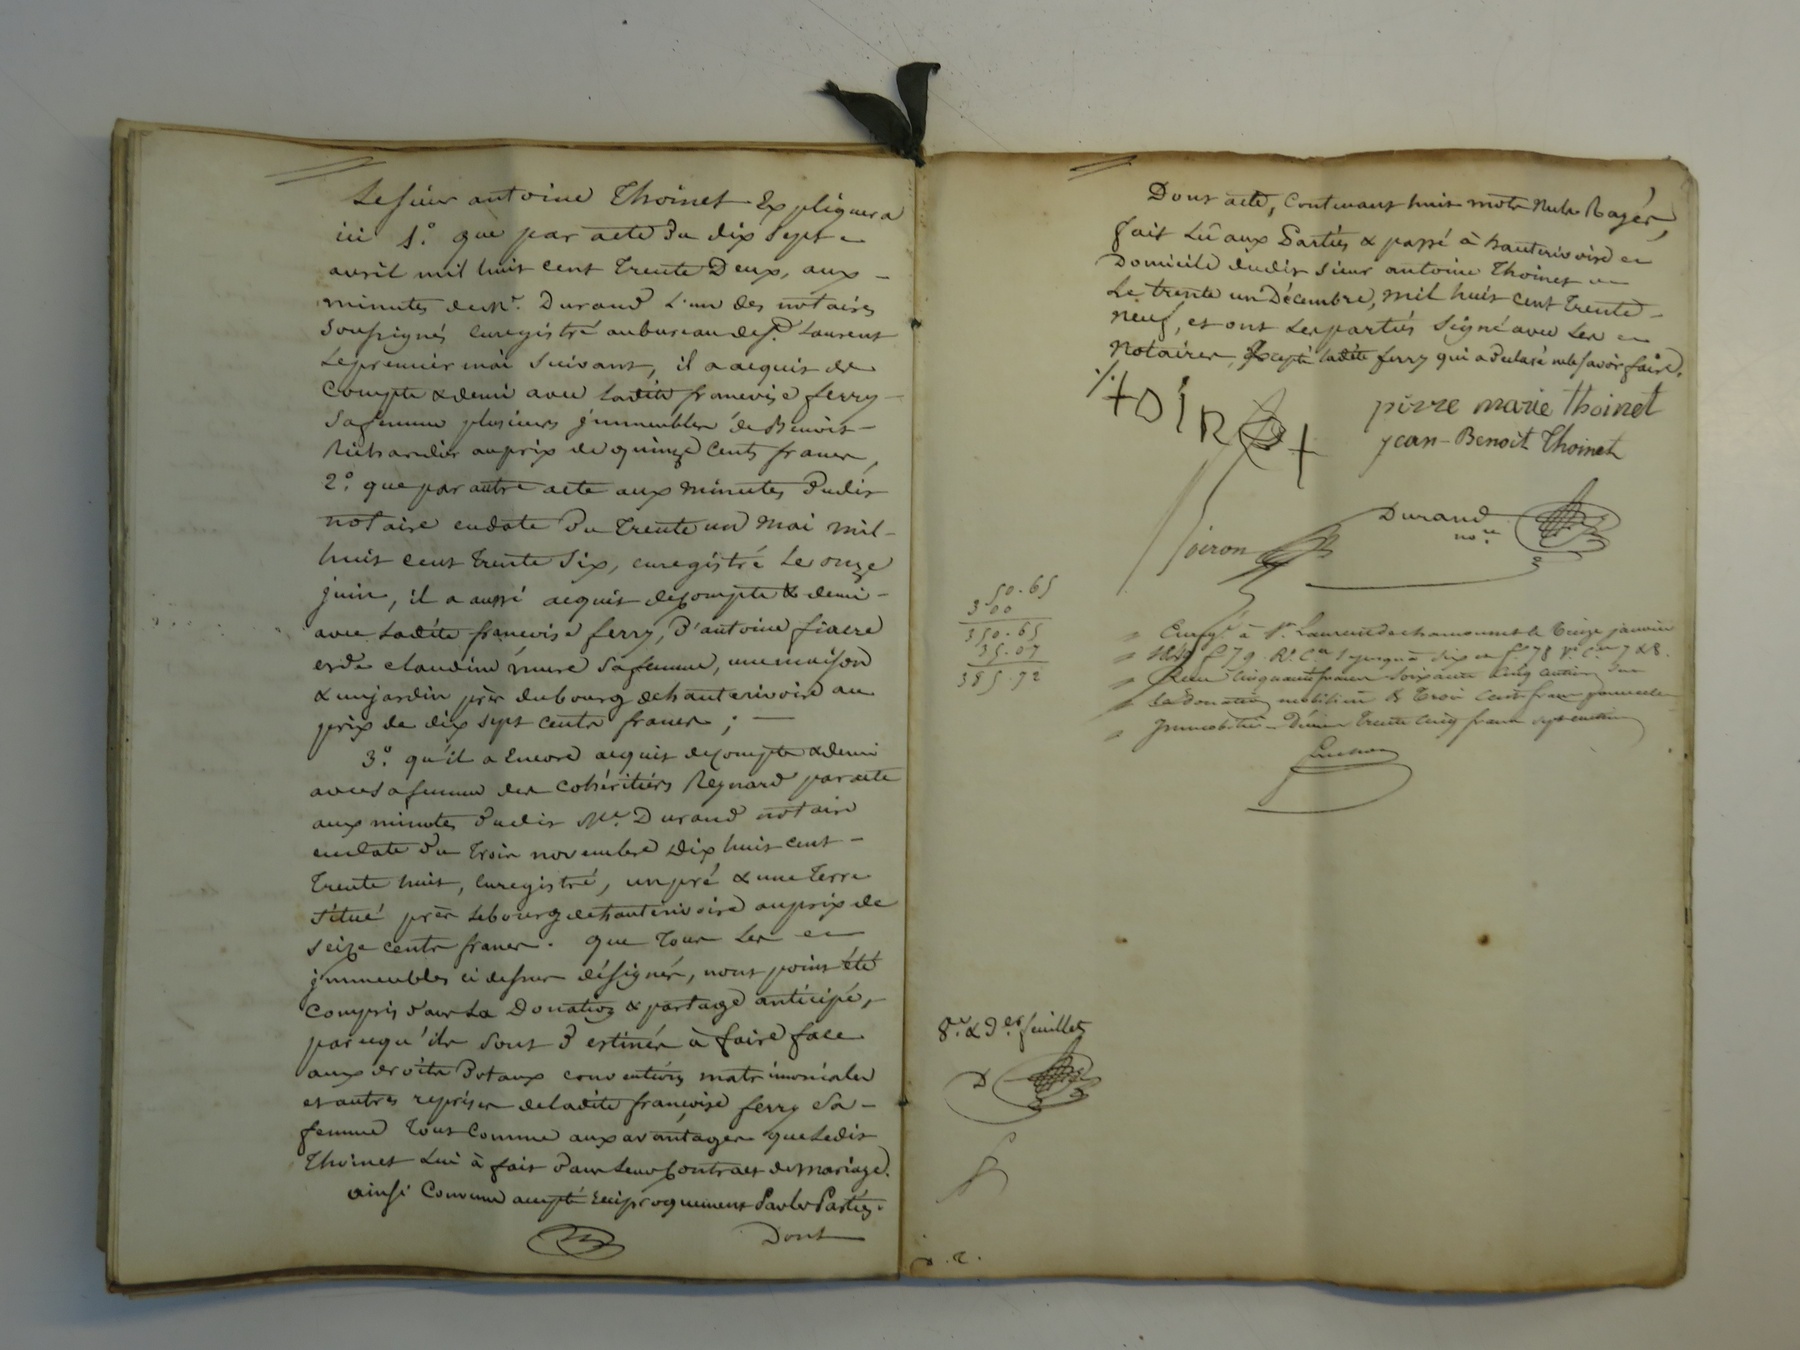 Le sieur antoine Thoinet Expliquera
ici 1.º que par acte du dix sept
avril mil huit cent trente Deux, aux
minutes de Mr. Durand L'un des notaires
soussignés enregistré au bureau de St. Laurent
le premier mai suivant, il a acquis de
Compte & demi avec Ladite françoise ferry
sa femme plusieurs jmmeubles de Benoit
Richardier au prix de quinze Cents francs,
2.º que par autre acte aux minutes dudit
notaire en date du trente un mai mil
huit cent trente six, enregistré Le onze
juin, il a aussi acquis de Compte & demi
avec Ladite françoise ferry, d'antoine fiacre
et de claudine sa femme, une maison
& un jardin près du bourg de hauterivoire au
prix de dix sept cents francs ;
3.º qu'il a Encore acquis de Compte & demi
avec sa femme des Cohéritiers Reynard par acte
aux minutes dudit Me. Durand notaire
en date du trois novembre Dix huit cent
trente huit, Enregistré, un pré & une terre
situé près Le bourg de hauterivoire au prix de
seize cents francs. que tous Les
jmmeubles ci dessus désignés, nont point été
Compris dans La Donation & partage anticipé,
parcequ'ils sont Destinés à faire face
aux droits Dotaux conventions matrimoniales
et autres reprises de Ladite françoise ferry sa
femme tout Comme aux avantages que Ledit
Thoinet Lui à fait dans Leur Contrat de mariage.
ainsi Convenu accepté Reciproquement Par les Parties.
Dont
Dont acte, Contenant huit mots Nuls Rayés,
fait Lû aux Parties & passé à hauterivoire
Domicile dudit sieur antoine Thoinet
Le trente un Décembre, mil huit cent trente
neuf, et ont Les parties signé avec Les
Notaires, Excepté Ladite ferry qui a déclaré ne le savoir faire.
pierre marie thoinet
jean-Benoit Thoinet
Durand
nore
50.65
300
350.65
35.07
385.72
Enregé à St. Laurent de chamousset le treize janvier
Reçu Cinquante francs soixante cinq centimes sur
la donation mobilière & trois Cents francs pour celle
jmmobilière Décime trente cinq francs sept centimes
8.e & 9.er feuillets
D